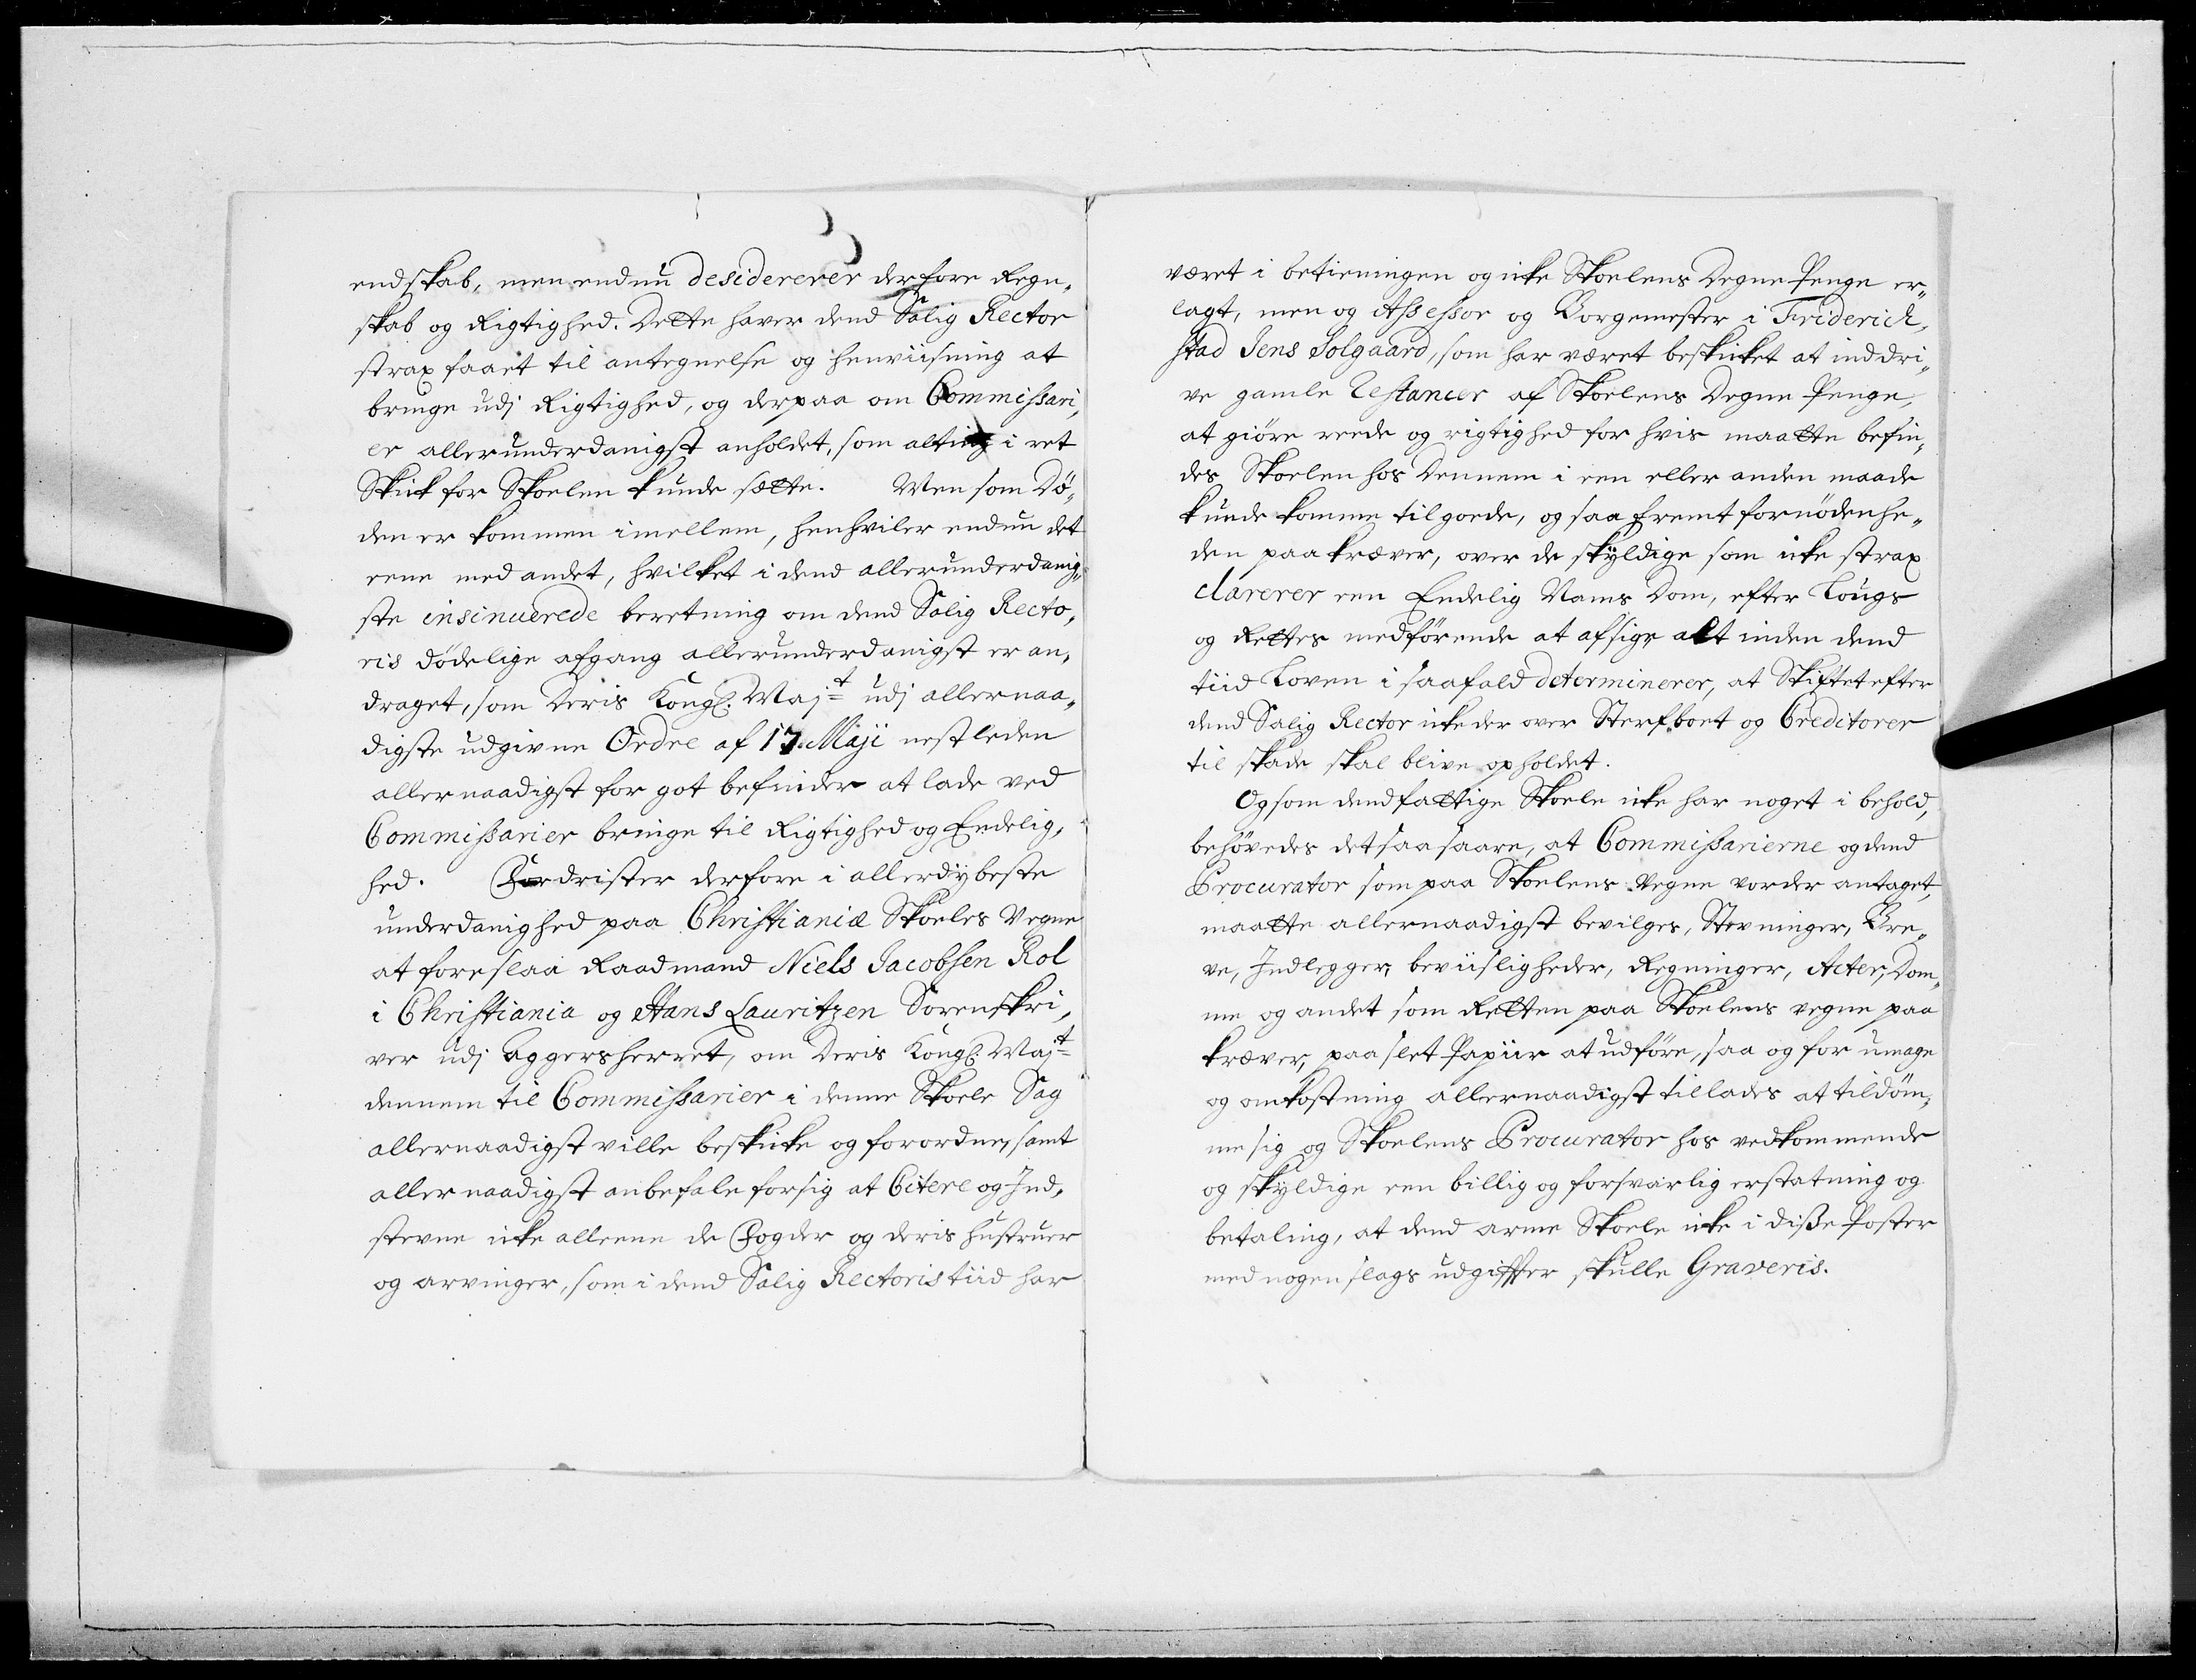 endskab, men endnu desidererer derfore Regn„
skab og Rigtighed. Dette haver dend Salig Rector
strax faaet til antegnelse og henviisning at
bringe udj Rigtighed, og derpaa om Commissari„
er allerunderdanigst anholdet, som alting i ret
Skick for Skoelen kunde sætte. Men som Dö„
den er kommen imellem, henhviler endnu det
eene med andet, hvilket i dend allerunderdanig„
ste insinuerede beretning om dend Salig Recto„
ris dödelige afgang allerunderdanigst er an„
draget, som Deris Kongl. Majt udj allernaa„
digste udgivne Ordre af 17 Maji nestleden
allernaadigst for got befinder at lade ved
Commissarier bringe til Rigtighed og Endelig„
hed. Fordrister derfore i allerdybeste
underdanighed paa Christianiæ Skoeles Vegne
at foreslaa Raadmand Niels Jacobsen Rol
i Christiania og Hans Lauritzen Sorenskri„
ver udj Aggersherret, om Deris Kongl. Majt
dennem til Commissarier i denne Skoele Sag
allernaadigst ville beskicke og forordne, samt
allernaadigst anbefale forsig at Citere og Ind„
stevne icke alleene de Fogder og deris hustruer
og arvinger, som i dend Salig Rectoris tiid har
været i betieningen og icke Skoelens Degne Penge er„
lagt, men og Assessor og Borgemester i Friderich„
stad Jens Solgaard, som har været beskicket at inddri„
ve gamle restancer af Skoelens Degne Penge,
at giöre reede og rigtighed for hvis maatte befin„
des Skoelen hos Dennem i een eller anden maade
kunde komme tilgoede, og saa fremt fornödenhe„
den paakræver, over de skyldige som icke strax
clarerer een Endelig Nams Dom, efter Lougs
og Rettes medförende at afsige alt inden dend
tiid Loven i saafald determinerer, at Skiftet efter
dend Salig Rector icke der over Sterfboet og Creditorer
til skade skal blive opholdet.
Og som dend fattige Skoele icke har noget i behold,
behövedes det saa saare, at Commissarierne og dend
Procurator som paa Skoelens Vegne vorder antaget,
maatte allernaadigst bevilges, Stevninger, Bre„
ve, Indlegger, beviisligheder, Regninger, Acter, Dom„
me og andet som Retten paa Skoelens vegne paa
kræver, paa slet Papiir at udföre, saa og for umage
og omkostning allernaadigst tillades at tildöm„
me sig og Skoelens Procurator hos vedkommende
og skyldige een billig og forsvarlig erstatning og
betaling, at dend arme Skoele icke i disse Poster
med nogenslags udgiffter skulle Graveris.